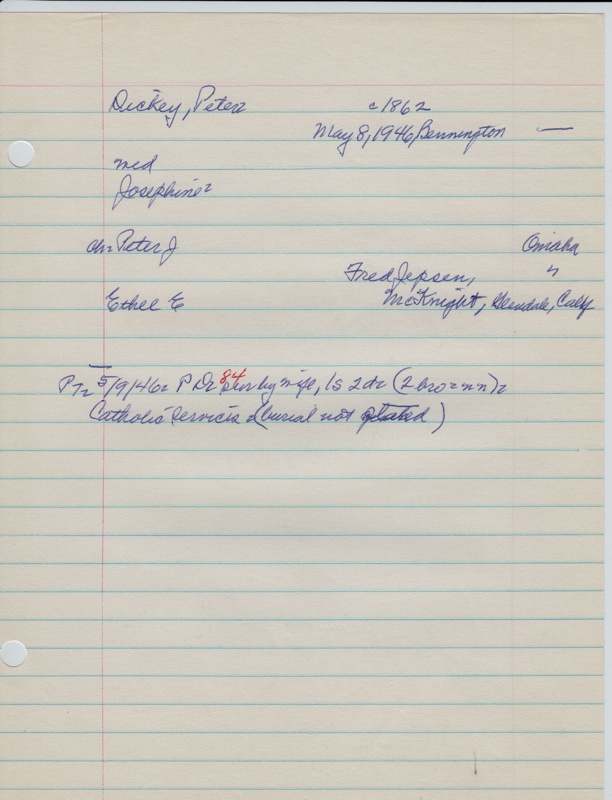 Dickey, Peter c1862
May 8, 1946, Bennington —
md
Josephine
ch: Peter J Omaha
Fred Jepsen, "
Ethel E McKnight, Glendale, Calif
5/9/46 P D 84 sur by wife, 1s 2d (2 bro = nn)
Catholic services (burial not stated)